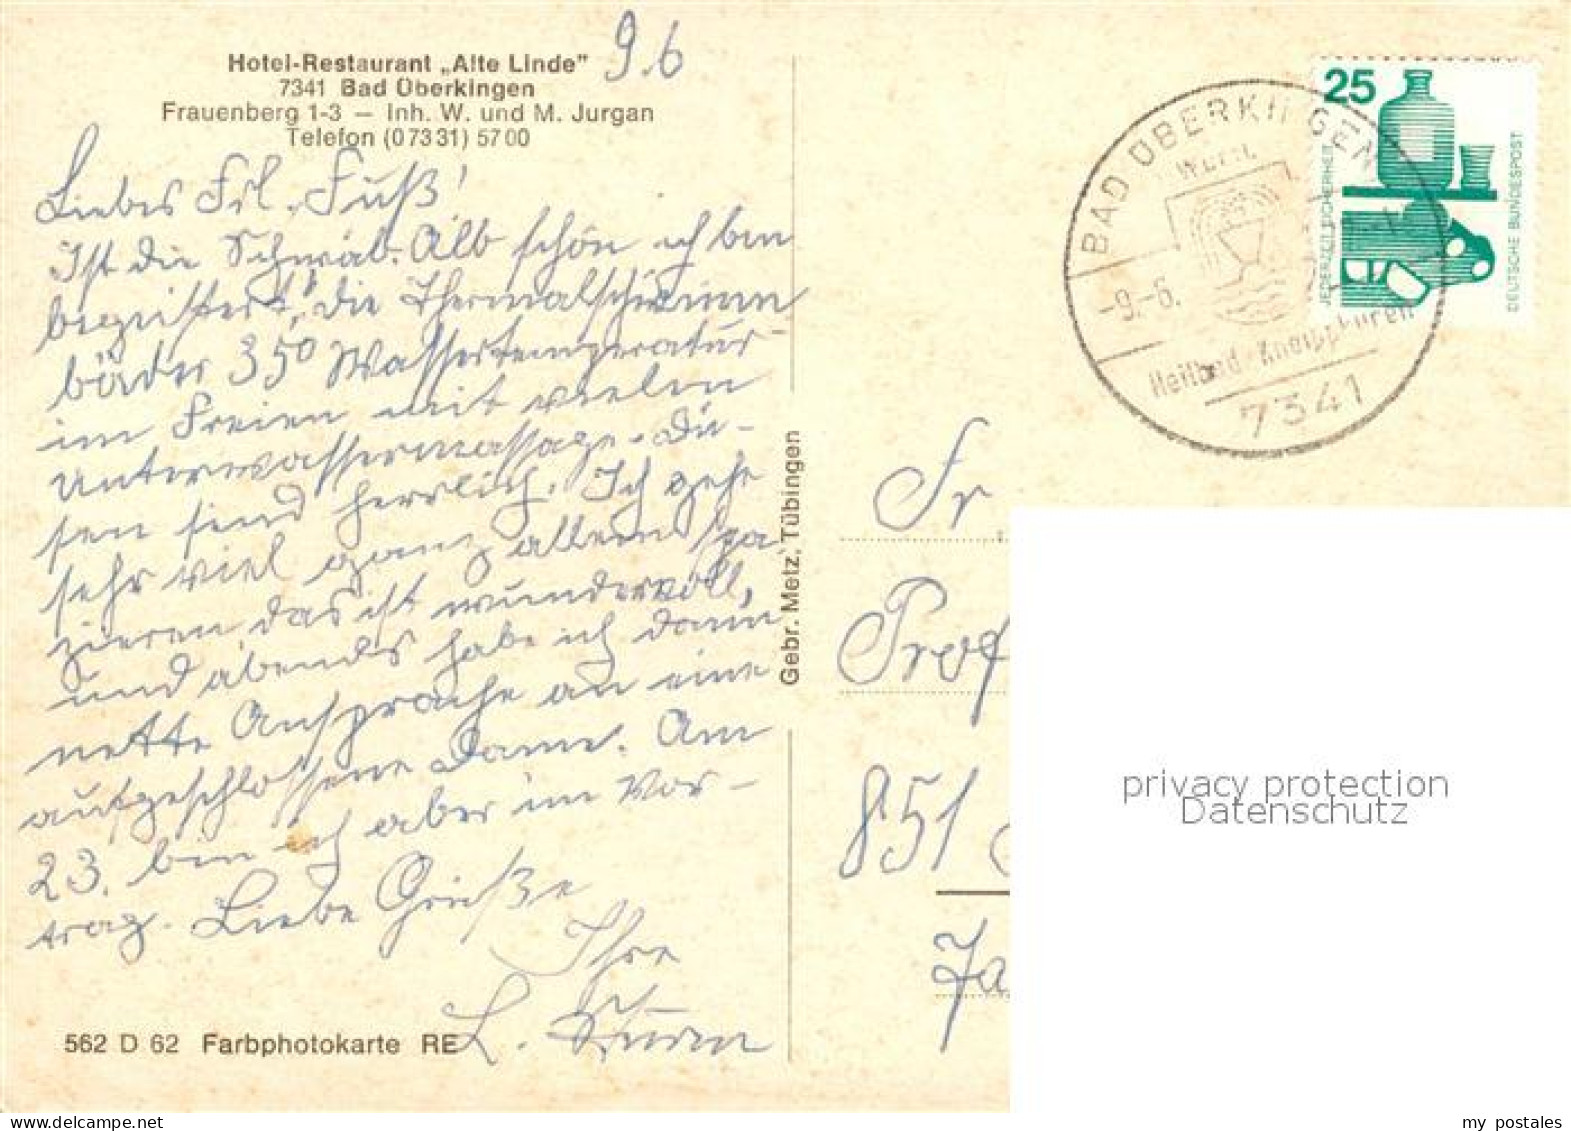 9.6
Hotel-Restaurant „Alte Linde"
7341 Bad Überkingen
Frauenberg 1-3 — Inh. W. und M. Jurgan
Telefon (07331) 5700
Liebes Frl. Fuß!
Ist die Schwäb. Alb schön ich bin
begeistert, die Thermalschwimm
bäder 35° Wassertemperatur
im Freien mit vielen
Unterwassermassage-Dü-
sen sind herrlich. Ich gehe
sehr viel ganz allein spa
zieren das ist wundervoll,
und abends habe ich dann
nette Ansprache an eine
aufgeschlossene Dame. Am
23. bin ich aber im Vor-
trag. Liebe Grüße
Ihre
L. Sturm
562 D 62 Farbphotokarte RE
Gebr. Metz, Tübingen
BAD ÜBERKINGEN
-9.-6.
Heilbad · Kneippkuren
7341
25
JEDERZEIT SICHERHEIT
DEUTSCHE BUNDESPOST
Fr
Prof
851
Ja
privacy protection
Datenschutz
my postales